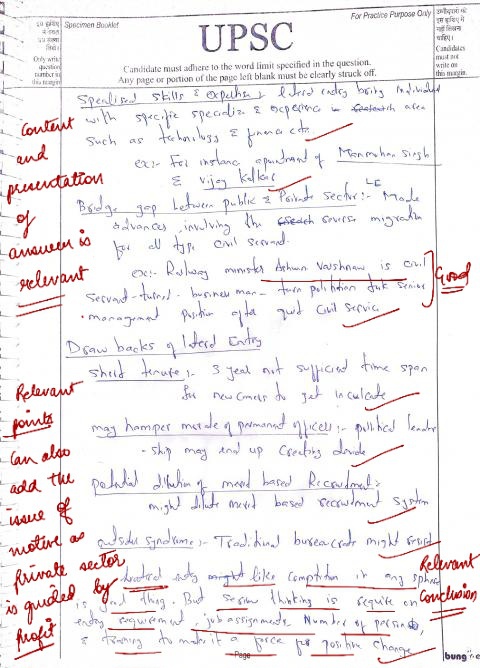 20 हाशिए
Specimen Booklet
For Practice Purpose Only
UPSC
उम्मीदवारों को
इस हाशिए में
नहीं लिखना
चाहिए।
Only write
question
number in
this margin
Candidate must adhere to the word limit specified in the question.
Any page or portion of the page left blank must be clearly struck off.
Candidates
must not
write on
this margin.
Specialised skills & expertise :- lateral entry bring individual
with specific specializ & experience in area
such as technology & finance etc.
ex:- For instance, apointment of Manmohan Singh
& Vijay Kelkar
Bridge gap between public & Private sector :- LE Made
advances involving the reverse migration
for all type civil servant.
ex:- Railway minister Ashwin Vaishnaw is civil
servant-turned-business man- turn politician senior
management position after quit civil service
Content
and
presentation
of
answer is
relevant
Good
Draw backs of lateral Entry
short tenure :- 3 year not sufficient time span
for new comers to get inculcate
may hamper morale of permanent officers :- political leader
-ship may end up creating divide
potential dilution of merit based Recruitment :-
might dilute merit based recruitment system
outsider syndrome :- Traditional bureaucrats might resist
lateral entry like competition in any sphere
is good thing. But serious thinking is require on
entry requirement, job assignments, Number of persons,
& training to make it a force for positive change
Relevant
points
Can also
add the
issue of
motive as
private sector
is guided by
profit
Relevant
Conclusion
Page